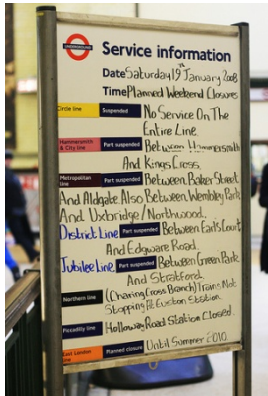 UNDERGROUND
Service information
Date Saturday 19th January 2008
Time Planned Weekend Closures
Circle line Suspended No Service On The
Entire Line.
Hammersmith & City line Part suspended Between Hammersmith
And Kings Cross.
Metropolitan line Part suspended Between Baker Street
And Aldgate Also Between Wembley Park
And Uxbridge/Northwood.
District Line Part suspended Between Earls Court
And Edgware Road.
Jubilee Line Part suspended Between Green Park
And Stratford.
Northern line (Charing Cross Branch) Trains Not
Stopping At Euston Station.
Piccadilly line Holloway Road Station Closed.
East London line Planned closure Until Summer 2010.